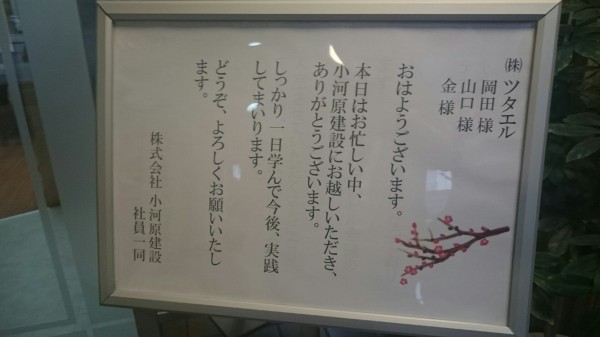 ㈱ツタエル
岡田様
山口様
金様
おはようございます。
本日はお忙しい中、
小河原建設にお越しいただき、
ありがとうございます。
しっかり一日学んで今後、実践
してまいります。
どうぞ、よろしくお願いいたし
ます。
株式会社 小河原建設
社員一同